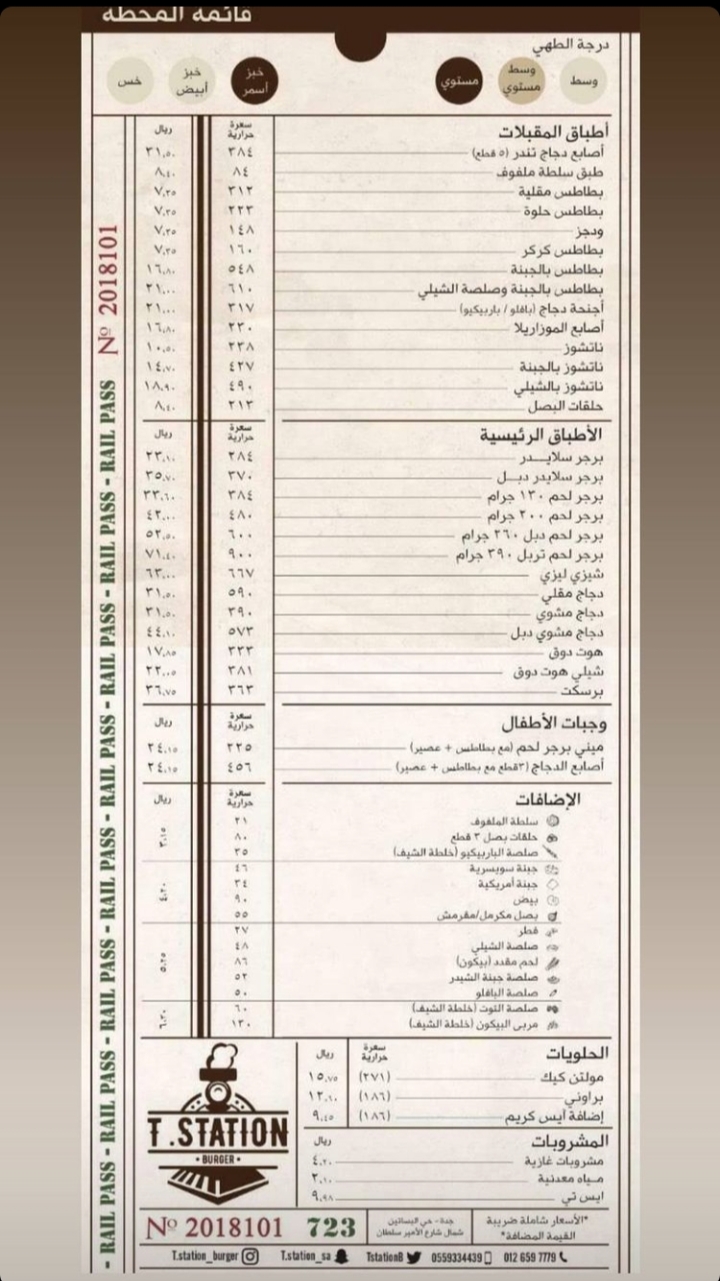 قائمة المحطة
درجة الطهي
وسط
وسط مستوي
مستوي
خبز أسمر
خبز أبيض
خس
أطباق المقبلات سعرة حرارية ريال
أصابع دجاج تندر (٥ قطع) ٣٨٤ ٣١,٥٠
طبق سلطة ملفوف ٨٤ ٨,٤٠
بطاطس مقلية ٣١٢ ٧,٣٥
بطاطس حلوة ٢٢٣ ٧,٣٥
ودجز ١٤٨ ٧,٣٥
بطاطس كركر ١٦٠ ٧,٣٥
بطاطس بالجبنة ٥٤٨ ١٦,٨٠
بطاطس بالجبنة وصلصة الشيلي ٦١٠ ٢١,٠٠
أجنحة دجاج (بافلو / باربيكيو) ٣١٧ ٢١,٠٠
أصابع الموزاريلا ٢٣٠ ١٦,٨٠
ناتشوز ٢٣٨ ١٠,٥٠
ناتشوز بالجبنة ٤٢٧ ١٤,٧٠
ناتشوز بالشيلي ٤٩٠ ١٨,٩٠
حلقات البصل ٢١٣ ٨,٤٠
الأطباق الرئيسية سعرة حرارية ريال
برجر سلايـــدر ٢٨٤ ٢٣,١٠
برجر سلايدر دبـــل ٣٧٠ ٣٥,٧٠
برجر لحم ١٣٠ جرام ٣٨٤ ٣٣,٦٠
برجر لحم ٢٠٠ جرام ٤٨٠ ٤٢,٠٠
برجر لحم دبل ٢٦٠ جرام ٦٠٠ ٥٢,٥٠
برجر لحم تربل ٣٩٠ جرام ٩٠٠ ٧١,٤٠
شيزي ليزي ٦٦٧ ٦٣,٠٠
دجاج مقلي ٥٩٠ ٣١,٥٠
دجاج مشوي ٣٩٠ ٣١,٥٠
دجاج مشوي دبل ٥٧٣ ٤٤,١٠
هوت دوق ٣٣٣ ١٧,٨٥
شيلي هوت دوق ٣٨١ ٢٢,٠٥
برسكت ٣٦٣ ٣٦,٧٥
وجبات الأطفال سعرة حرارية ريال
ميني برجر لحم (مع بطاطس + عصير) ٢٢٥ ٢٤,١٥
أصابع الدجاج (٣قطع مع بطاطس + عصير) ٤٥٦ ٢٤,١٥
الإضافات سعرة حرارية ريال
سلطة الملفوف ٢١
حلقات بصل ٣ قطع ٨٠ ٣,١٥
صلصة الباربيكيو (خلطة الشيف) ٣٥
جبنة سويسرية ٤٦
جبنة أمريكية ٣٤
بيض ٩٠ ٤,٢٠
بصل مكرمل/مقرمش ٥٥
فطر ٢٧
صلصة الشيلي ٤٨
لحم مقدد (بيكون) ٨٦ ٥,٢٥
صلصة جبنة الشيدر ٥٢
صلصة البافلو ٥٠
صلصة التوت (خلطة الشيف) ٦٠
مربى البيكون (خلطة الشيف) ١٣٠ ٦,٣٠
الحلويات سعرة حرارية ريال
مولتن كيك (٢٧١) ١٥,٧٥
براوني (١٨٦) ١٢,٦٠
إضافة آيس كريم (١٨٦) ٩,٤٥
المشروبات ريال
مشروبات غازية ٤,٢٠
مـيـاه معدنية ٢,١٠
ايس تي ٩,٩٨
T.STATION
• BURGER •
*الأسعار شاملة ضريبة
القيمة المضافة*
جدة - حي البساتين
شمال شارع الأمير سلطان
723
Nº 2018101
012 659 7779
0559334439
TstationB
T.station_sa
T.station_burger
Nº 2018101
- RAIL PASS - RAIL PASS - RAIL PASS - RAIL PASS - RAIL PASS - RAIL PASS - RAIL PASS - RAIL PASS